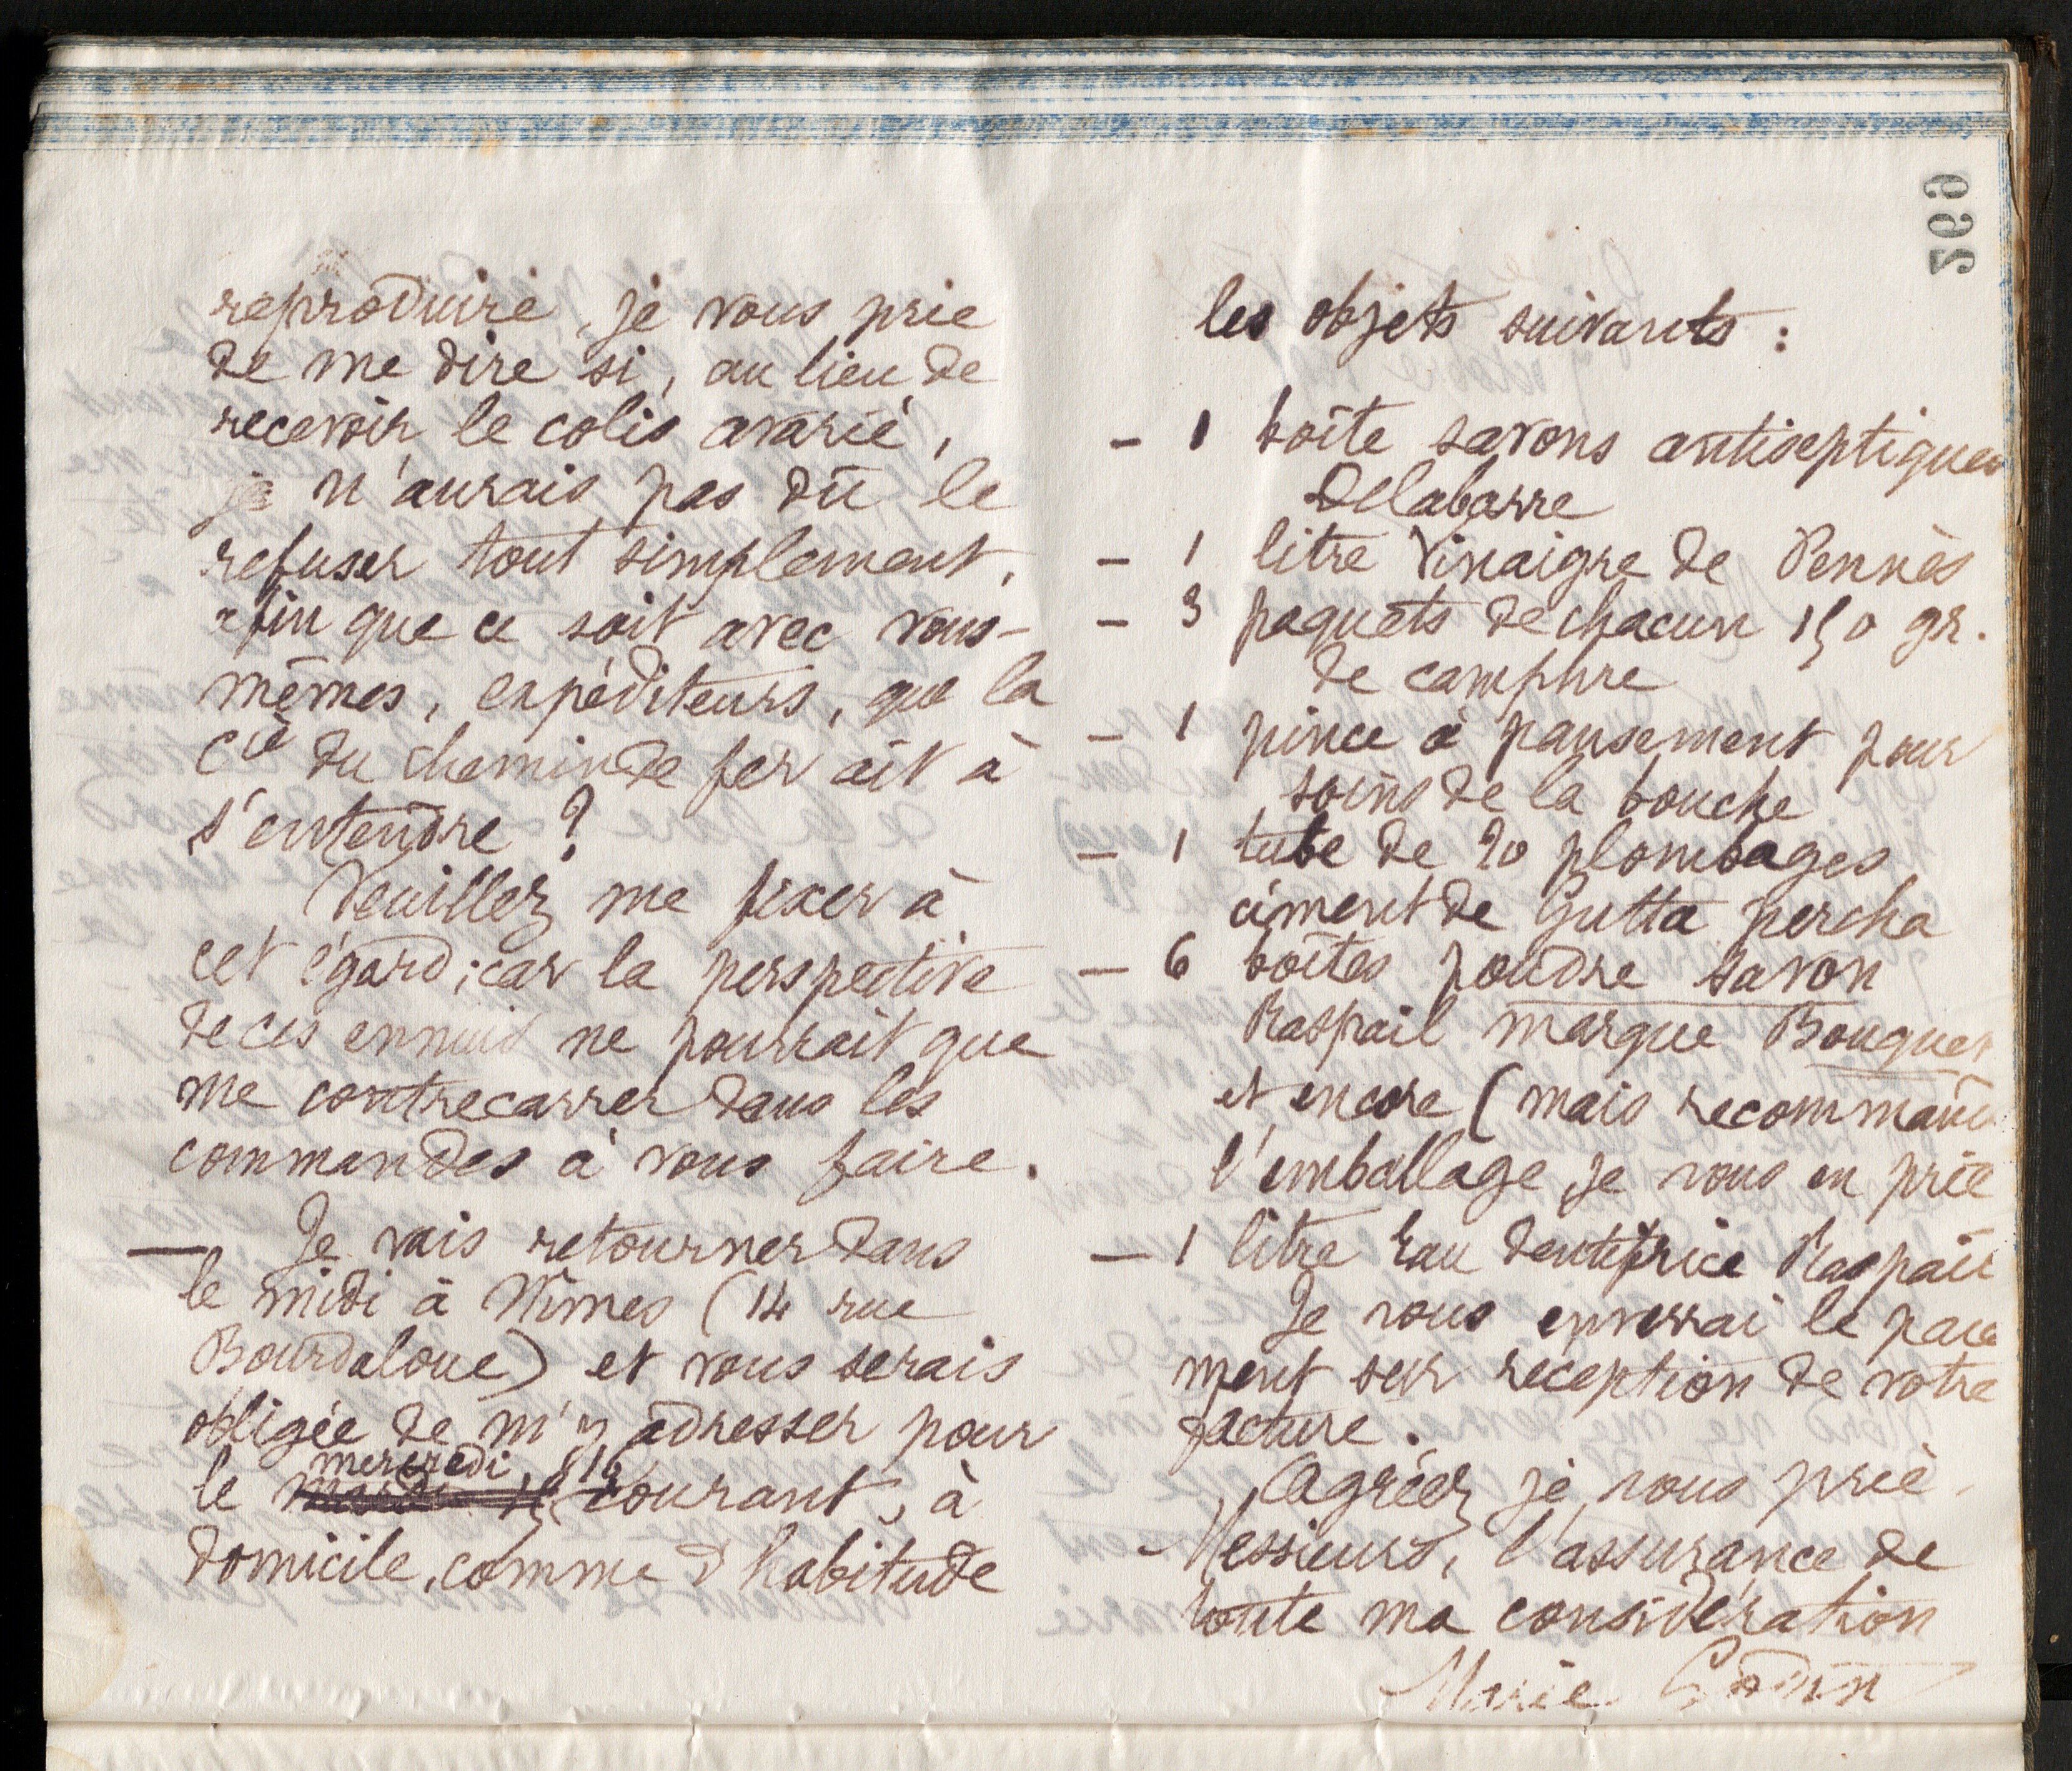 299
reproduire, je vous prie
de me dire si, au lieu de
recevoir le colis avarié,
je n'aurais pas dû le
refuser tout simplement,
afin que ce soit avec vous-
mêmes, expéditeurs, que la
Cie du chemin de fer ait à
s'entendre ?
Veuillez me fixer à
cet égard ; car la perspective
de ces ennuis ne pourrait que
me contrecarrer dans les
commandes à vous faire.
— Je vais retourner dans
le midi à Nîmes (14 rue
Bourdaloue) et vous serais
obligée de m'y adresser pour
mercredi
le courant, à
domicile, comme d'habitude
les objets suivants :
– 1 boîte savons antiseptiques
Delabarre
– 1 litre Vinaigre de Pennès
– 3 paquets de chacun 150 gr.
de camphre
– 1 pince à pansement pour
soins de la bouche
– 1 tube de 20 plombages
ciment de Gutta percha
– 6 boîtes poudre savon
Raspail marque Bouquet
et encore (mais recommand
l'emballage, je vous en prie
– 1 litre Eau dentifrice Raspail
Je vous enverrai le paie
ment sur réception de votre
facture.
Agréez, je vous prie,
Messieurs, l'assurance de
toute ma considération
Marie Godin